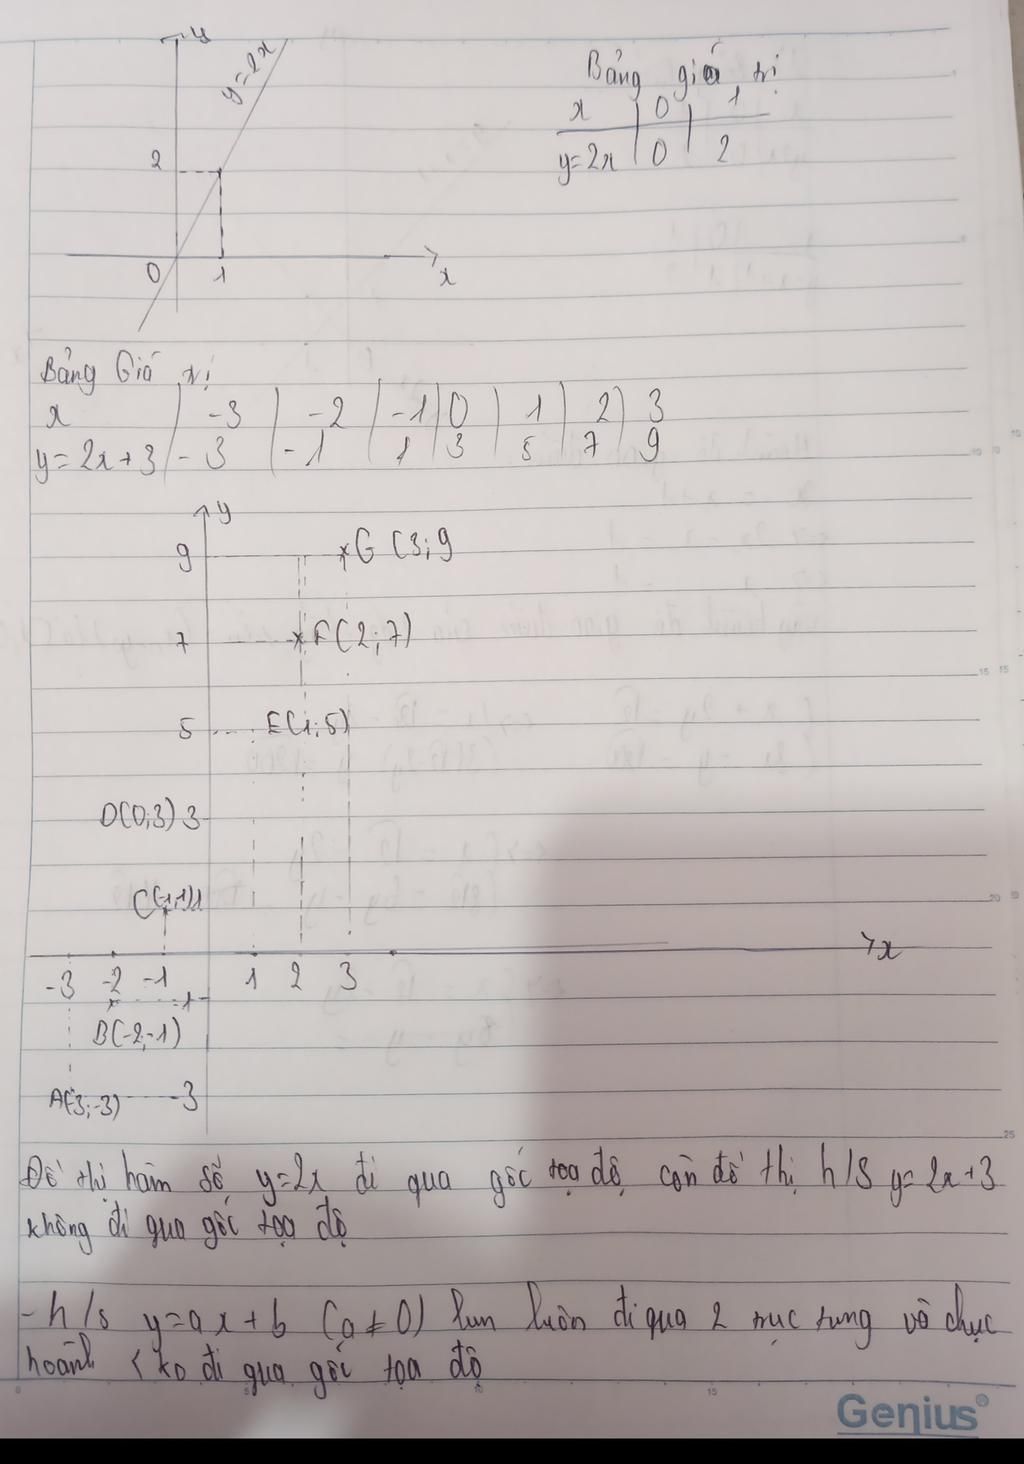 y
y=2x
2
0 1 x
Bảng giá trị
x 0 1
y=2x 0 2
Bảng Giá trị
x -3 -2 -1 0 1 2 3
y=2x+3 -3 -1 1 3 5 7 9
y
9 G (3;9
7 F(2;7)
5 E(1;5)
D(0;3) 3
C(-1;1)1
x
-3 -2 -1 1 2 3
-1
B(-2;-1)
A(-3;-3) -3
Đồ thị hàm số y=2x đi qua gốc toạ độ còn đồ thị h/s y=2x+3
không đi qua gốc toạ độ
- h/s y=ax+b (a≠0) lun luôn đi qua 2 trục tung và chục
hoành < ko đi qua gốc tọa độ
5 10 15
10
15
20
25
Genius